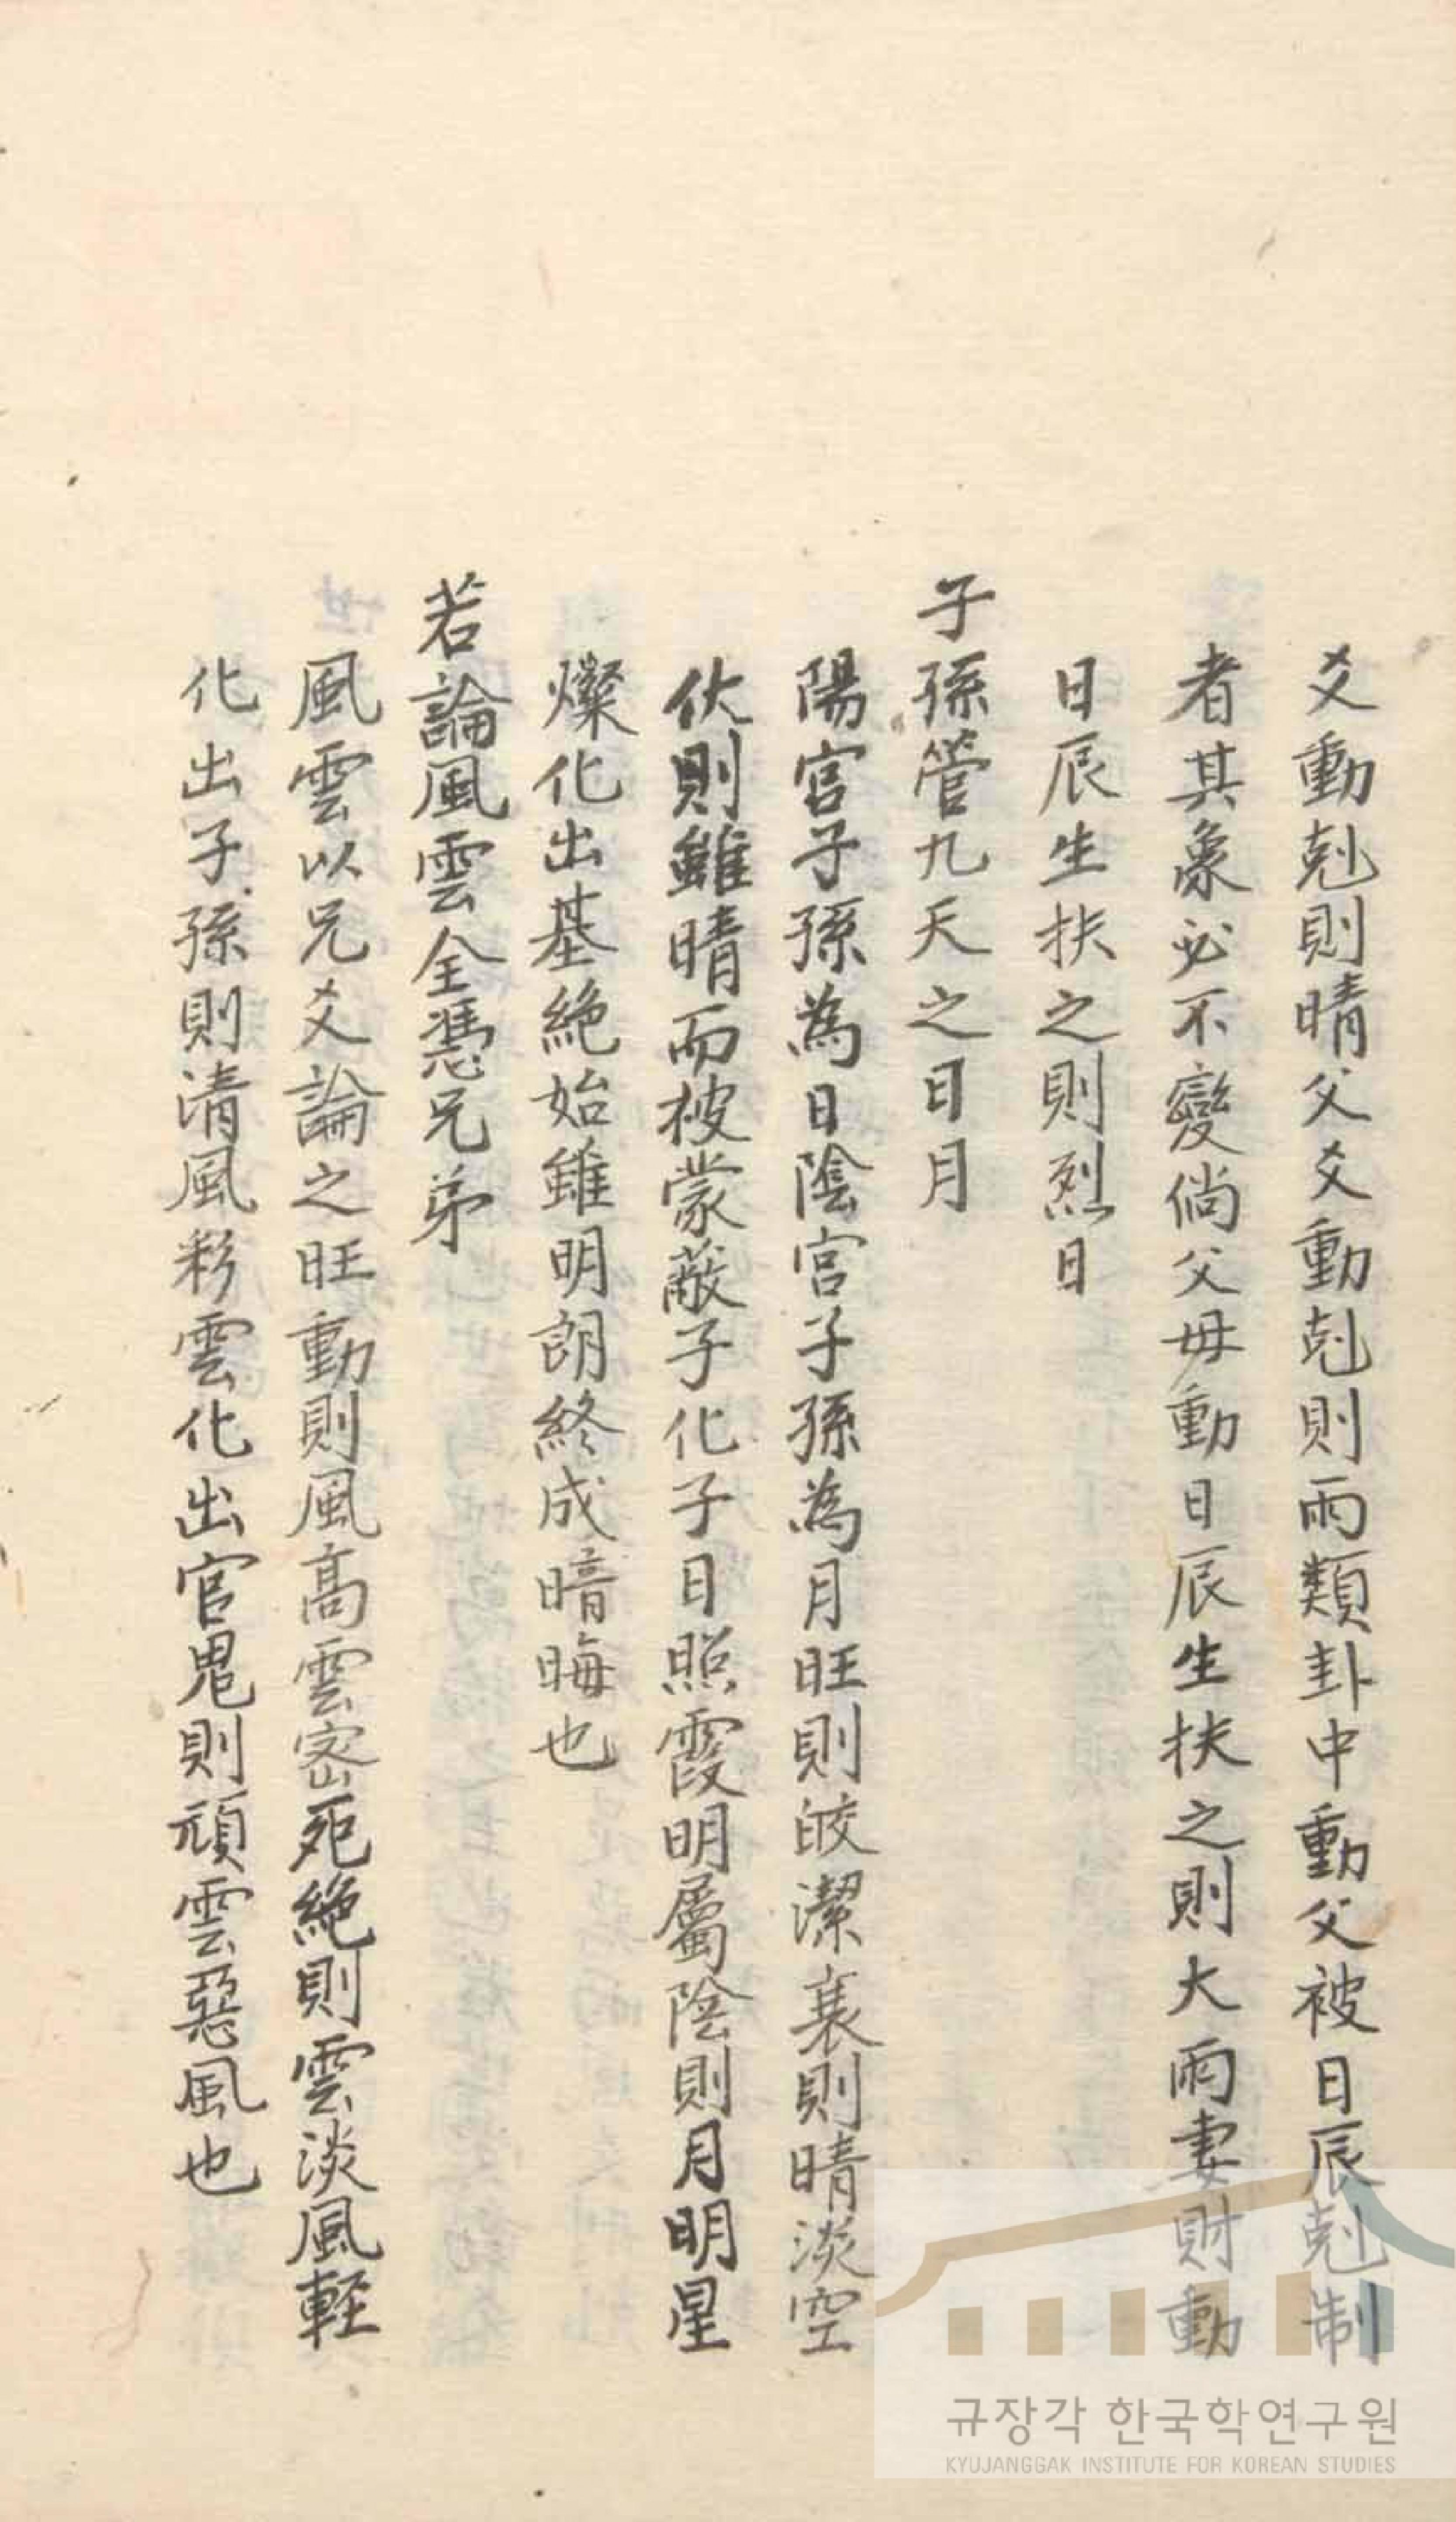 爻動剋則晴父爻動剋則雨類卦中動父被日辰剋制
者其象必不變倘父母動日辰生扶之則大雨妻財動
日辰生扶之則烈日
子孫管九天之日月
陽宮子孫為日陰宮子孫為月旺則皎潔衰則晴淡空
伏則雖晴而被蒙蔽子化子日照霞明屬陰則月明星
燦化出基絶始雖明朗終成暗晦也
若論風雲全憑兄弟
風雲以兄爻論之旺動則風高雲密死絶則雲淡風軽
化出子孫則清風彩雲化出官鬼則頑雲惡風也
규장각 한국학연구원
KYUJANGGAK INSTITUTE FOR KOREAN STUDIES